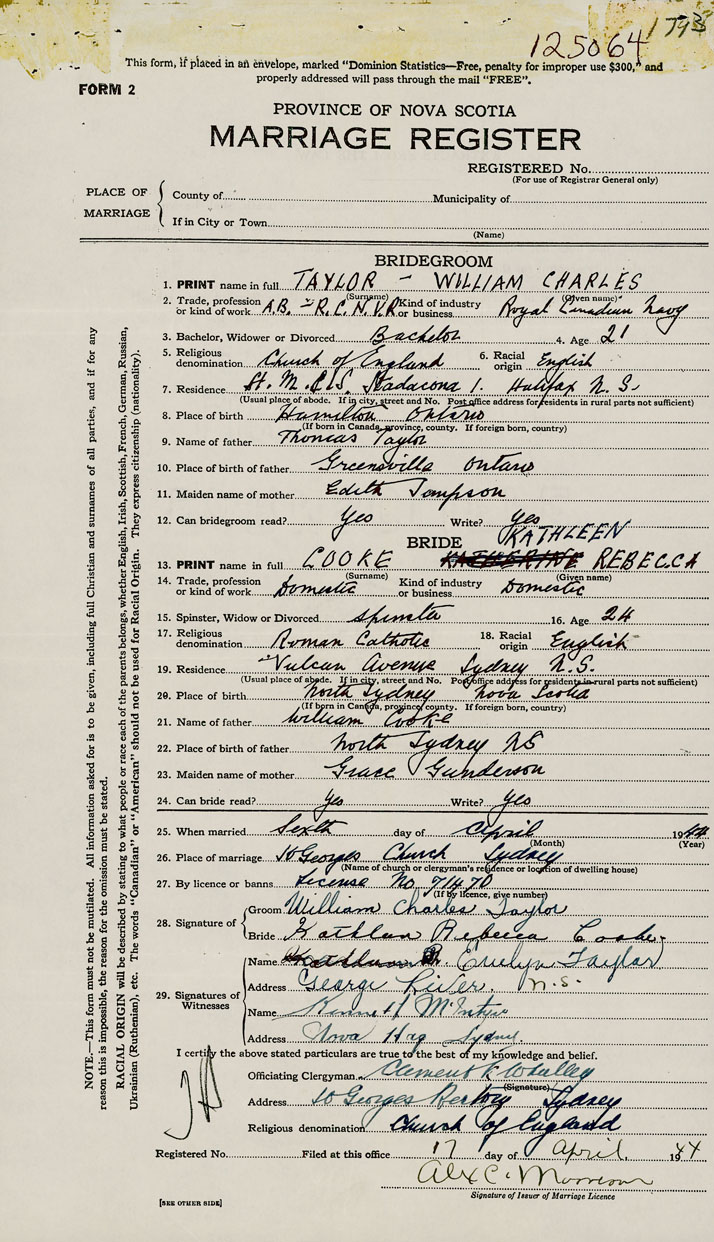 125064
1793
This form, if placed in an envelope, marked “Dominion Statistics—Free, penalty for improper use $300,” and
properly addressed will pass through the mail “FREE”.
FORM 2
PROVINCE OF NOVA SCOTIA
MARRIAGE REGISTER
REGISTERED No.
(For use of Registrar General only)
PLACE OF MARRIAGE
County of Municipality of
If in City or Town
(Name)
BRIDEGROOM
1. PRINT name in full TAYLOR — WILLIAM CHARLES
(Surname) (Given name)
2. Trade, profession or kind of work A.B. R.C.N.V.R. Kind of industry or business Royal Canadian Navy
3. Bachelor, Widower or Divorced Bachelor 4. Age 21
5. Religious denomination Church of England 6. Racial origin English
7. Residence H.M.C.S. Stadacona 1. Halifax N.S.
(Usual place of abode. If in city, street and No. Post office address for residents in rural parts not sufficient)
8. Place of birth Hamilton Ontario
(If born in Canada, province, county. If foreign born, country)
9. Name of father Thomas Taylor
10. Place of birth of father Greensville Ontario
11. Maiden name of mother Edith Tompson
12. Can bridegroom read? Yes Write? Yes
BRIDE KATHLEEN
13. PRINT name in full COOKE KATHERINE REBECCA
(Surname) (Given name)
14. Trade, profession or kind of work Domestic Kind of industry or business Domestic
15. Spinster, Widow or Divorced Spinster 16. Age 24
17. Religious denomination Roman Catholic 18. Racial origin English
19. Residence Vulcan Avenue Sydney N.S.
(Usual place of abode. If in city, street and No. Post office address for residents in rural parts not sufficient)
20. Place of birth North Sydney Nova Scotia
(If born in Canada, province, county. If foreign born, country)
21. Name of father William Cooke
22. Place of birth of father North Sydney NS
23. Maiden name of mother Grace Gunderson
24. Can bride read? Yes Write? Yes
25. When married Sixth day of April 1944
(Month) (Year)
26. Place of marriage St Georges Church Sydney
(Name of church or clergyman's residence or location of dwelling house)
27. By licence or banns License No. 71470
(If by licence, give number)
28. Signature of
Groom William Charles Taylor
Bride Kathleen Rebecca Cooke
29. Signatures of Witnesses
Name Evelyn Taylor
Address George River. N.S.
Name Kenneth McIntyre
Address Nova Hag Sydney.
I certify the above stated particulars are true to the best of my knowledge and belief.
Officiating Clergyman Clement K Whalley
(Signature)
Address St Georges Rectory Sydney
Religious denomination Church of England
Registered No. Filed at this office 17 day of April 1944
Alex C. Morrison
Signature of Issuer of Marriage Licence
[SEE OTHER SIDE]
NOTE.—This form must not be mutilated. All information asked for is to be given, including full Christian and surnames of all parties, and if for any
reason this is impossible, the reason for the omission must be stated.
RACIAL ORIGIN will be described by stating to what people or race each of the parents belongs, whether English, Irish, Scottish, French, German, Russian,
Ukrainian (Ruthenian), etc. The words “Canadian” or “American” should not be used for Racial Origin. They express citizenship (nationality).